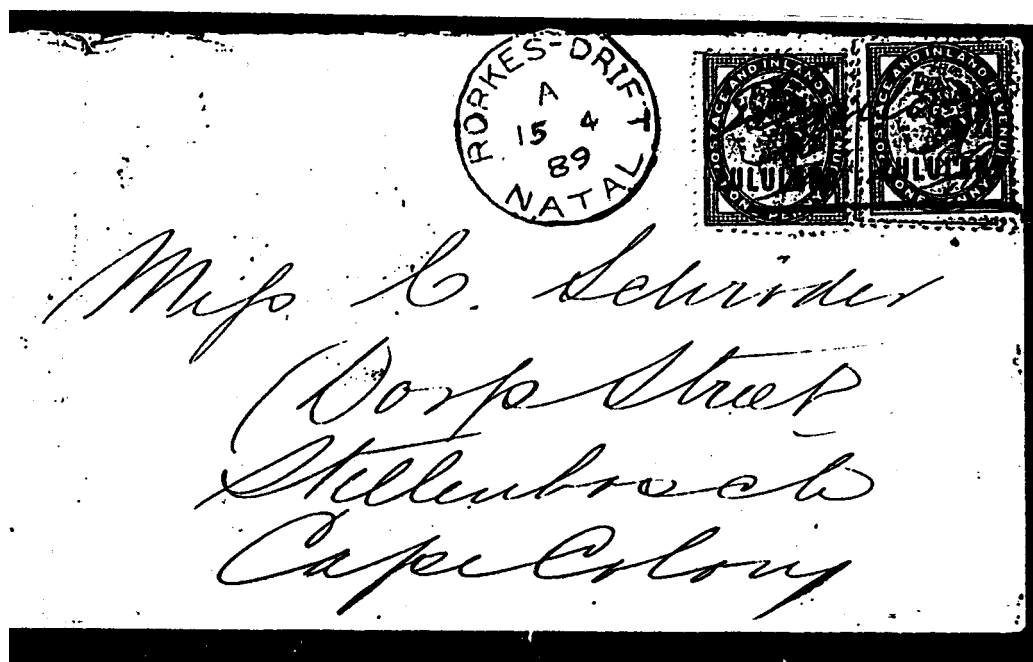 RORKES-DRIFT
A
15 4
89
NATAL
POSTAGE AND INLAND REVENUE
ZULULAND
POSTAGE AND INLAND REVENUE
ZULULAND
Miss C. Schröder
Dorp Street
Stellenbosch
Cape Colony